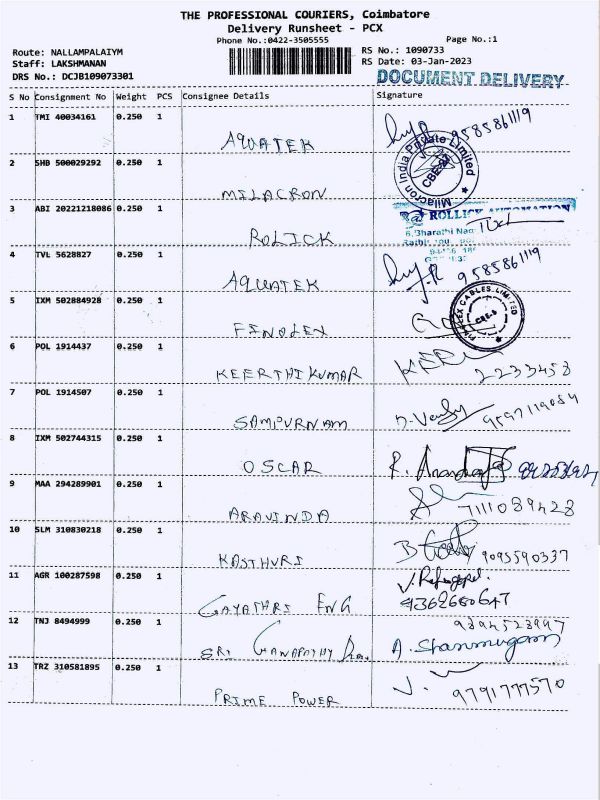 THE PROFESSIONAL COURIERS, Coimbatore
Delivery Runsheet - PCX
Phone No.:0422-3505555
Page No.:1
Route: NALLAMPALAIYM
RS No.: 1090733
Staff: LAKSHMANAN
RS Date: 03-Jan-2023
DRS No.: DCJB109073301
DOCUMENT DELIVERY
S No Consignment No Weight PCS Consignee Details Signature
1 TMI 40034161 0.250 1
AQUATEK 9585861119
2 SHB 500029292 0.250 1
MILACRON
Milacron India Private Limited
CBE-27
3 ABI 20221218086 0.250 1
ROLICK
ROLLICK AUTOMATION
6, Bharathi Nag
4 TVL 5628827 0.250 1
AQUATEK 9585861119
5 IXM 502884928 0.250 1
FINOLEX
FINOLEX CABLES LIMITED
CBE-6
6 POL 1914437 0.250 1
KEERTHIKUMAR 2233453
7 POL 1914507 0.250 1
SAMPURNAM 9597119084
8 IXM 502744315 0.250 1
OSCAR R. Anandha
9 MAA 294289901 0.250 1
ARAVINDA 7111089428
10 SLM 310830218 0.250 1
KASTHURI 9095590337
11 AGR 100287598 0.250 1
V. Rajagopal.
GAYATHRI ENG 9362680647
12 TNJ 8494999 0.250 1
9394523997
SRI GANAPATHY A. Shanmugam
13 TRZ 310581895 0.250 1
PRIME POWER 9791777570